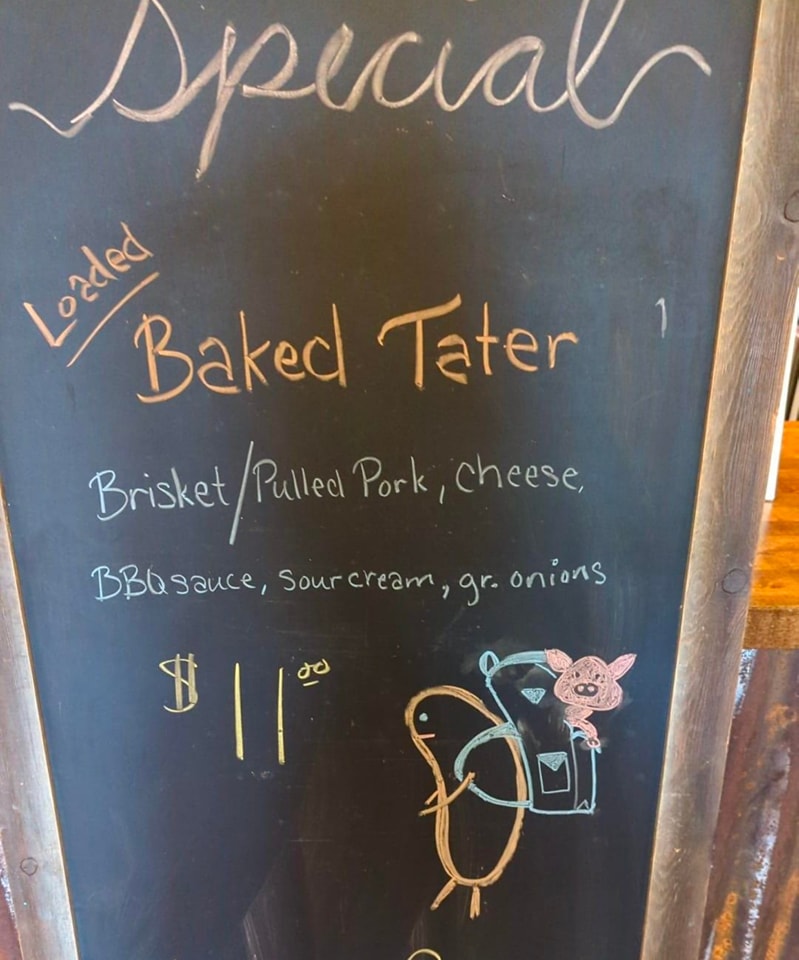 Special
Loaded
Baked Tater
Brisket/Pulled Pork, Cheese,
BBQ sauce, sour cream, gr. onions
$11.00